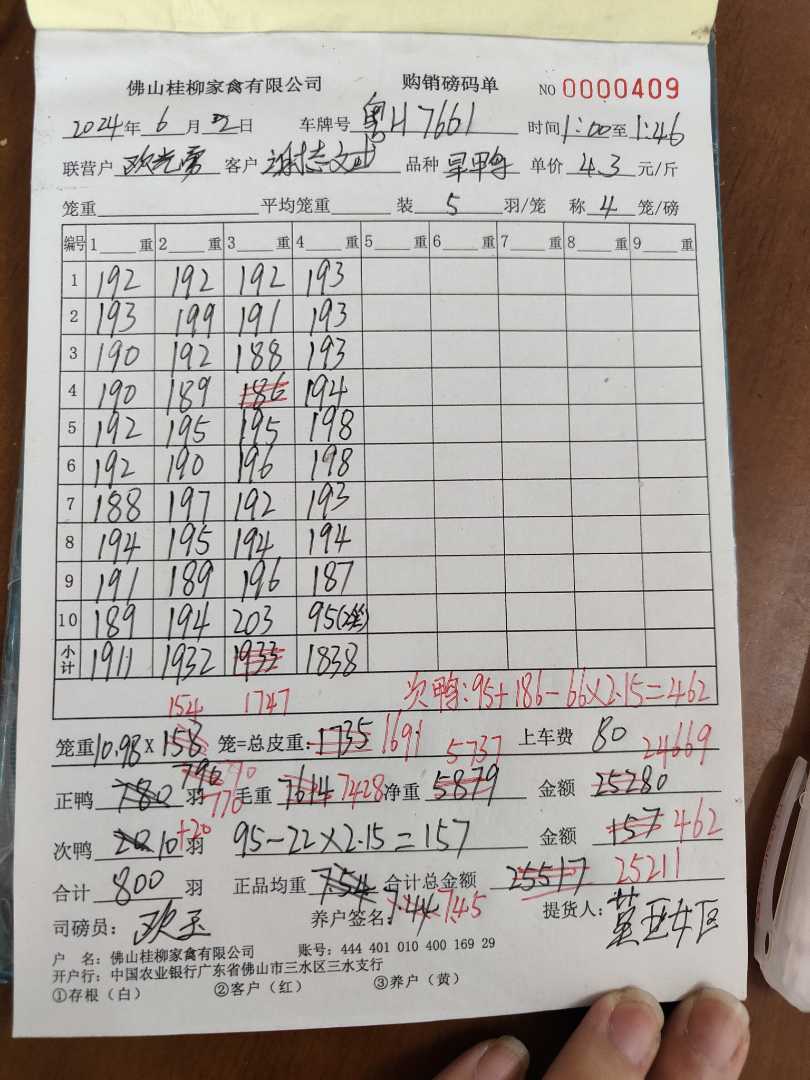 佛山桂柳家禽有限公司 购销磅码单 NO 0000409
2024年 6 月 22日 车牌号 粤H7661 时间 1:00 至 1:46
联营户 客户 谢志文 品种 旱鸭 单价 4.3 元/斤
笼重 平均笼重 装 5 羽/笼 称 4 笼/磅
编号 1 重 2 重 3 重 4 重 5 重 6 重 7 重 8 重 9 重
1 192 192 192 193
2 193 199 191 193
3 190 192 188 193
4 190 189 186 194
5 192 195 195 198
6 192 190 196 198
7 188 197 192 193
8 194 195 194 194
9 191 189 196 187
10 189 194 203 95(2笼)
小计 1911 1932 1933 1838
154 1747 次鸭:95+186-66×2.15=462
笼重 10.98 X 158 笼=总皮重: 1735 1691 上车费 80
5737 24669
正鸭 780 790 770 羽 毛重 7614 7428 净重 5879 金额 25280
次鸭 20 10 +20 羽 95-22×2.15=157 金额 157 462
合计 800 羽 正品均重 7.54 7.44 7.45 合计总金额 25517 25211
司磅员: 养户签名: 提货人:
户 名: 佛山桂柳家禽有限公司 账号: 444 401 010 400 169 29
开户行: 中国农业银行广东省佛山市三水区三水支行
①存根(白) ②客户(红) ③养户(黄)